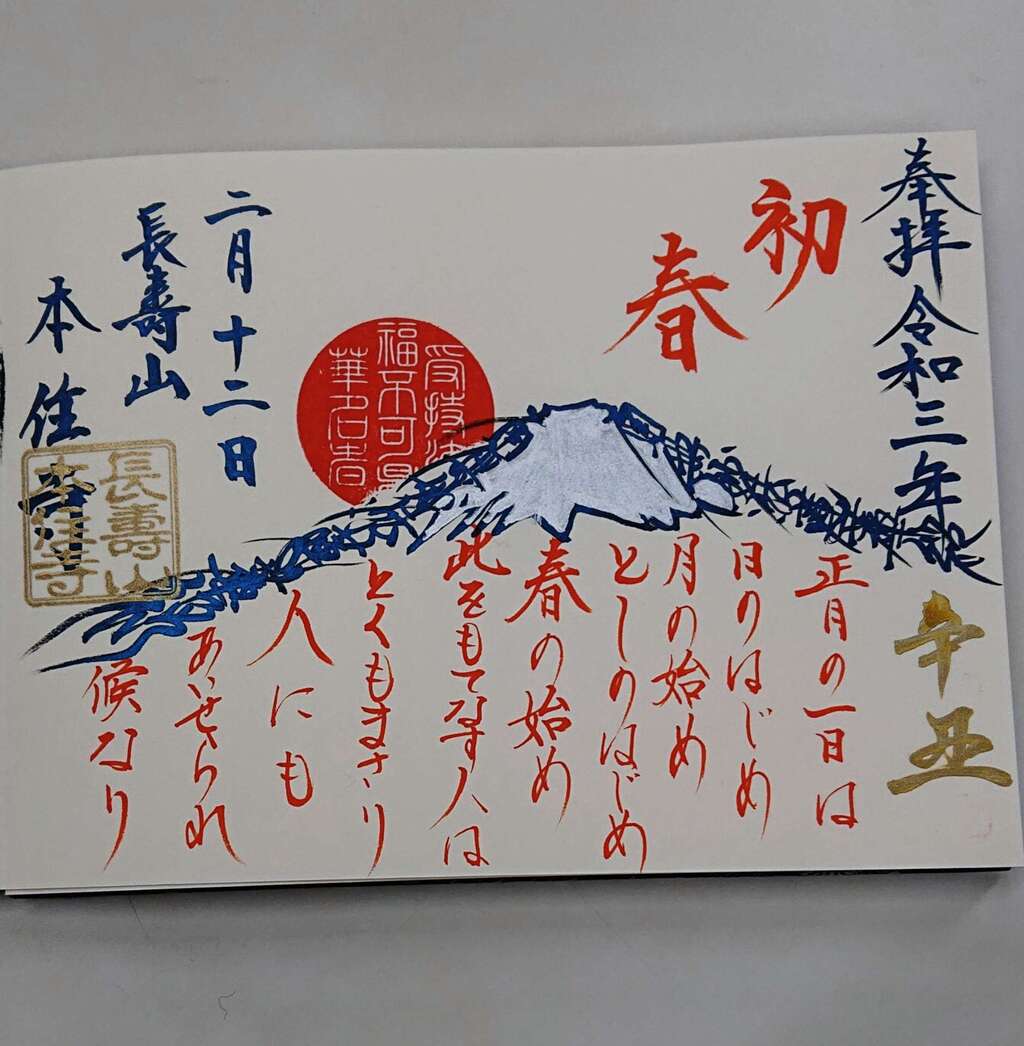 奉拝 令和三年
辛丑
初春
正月の一日は
日のはじめ
月の始め
としのはじめ
春の始め
此をもてなす人は
とくもまさり
人にも
あいせられ
候なり
受持法
華名者
福不可量
二月十二日
長壽山
本住寺
長壽山
本住寺